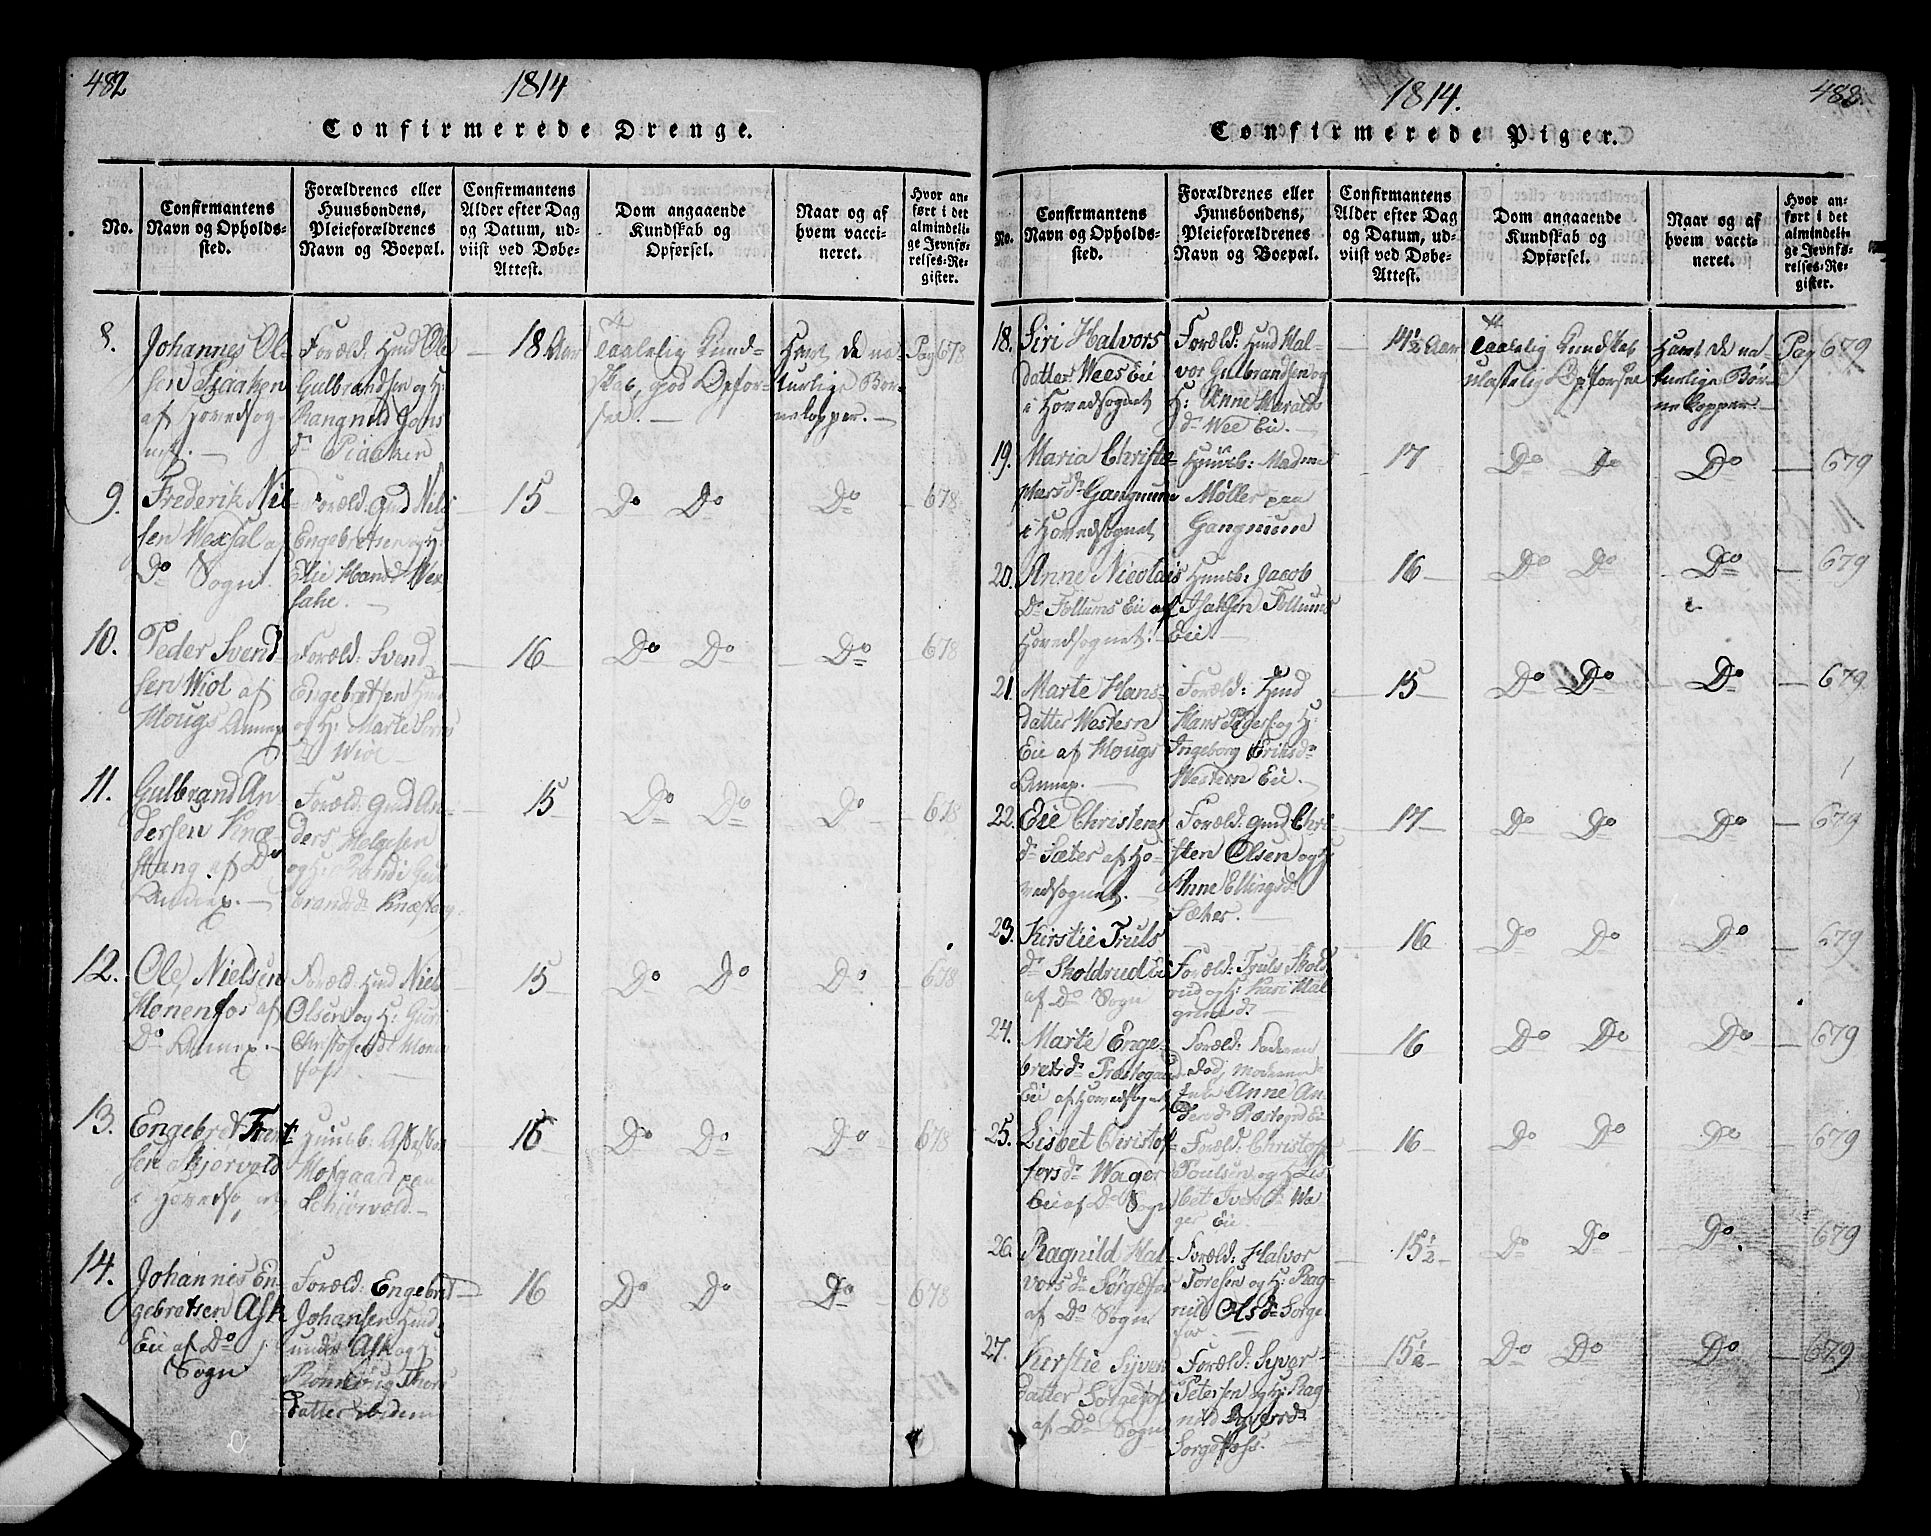 482
1814
Confirmerede Drenge.
No.
Confirmantens
Navn og Opholds-
sted.
Forældrenes eller
Huusbondens,
Pleieforældrenes
Navn og Boepæl.
Confirmantens
Alder efter Dag
og Datum, ud-
viist ved Døbe-
Attest.
Dom angaaende
Kundskab og
Opførsel.
Naar og af
hvem vacci-
neret.
Hvor an-
ført i det
almindeli-
ge Jevnfø-
relses-Re-
gister.
8.
Johannes Ol-
sen
af Hovedsog-
net.
Foræld: Hmd Ole
Gulbrandsen og H:
Rangnild Jans
18 Aar
Taalelig Kund-
skab, god Opfør-
sel.
Havt de na-
turlige Bør-
nekopper.
Pag 678
9.
Frederik Niel-
sen Wexsal af
Do Sogn.
Foræld: Gmd Nils
Engebretsen og H:
15
Do Do
Do
678
10.
Peder Svend
sen Wiol af
Hougs Annex
Foræld: Svend
Engebretsen Hmd
og H: Marte
Wiol
16
Do Do
Do
678
11.
Gulbrand An
dersen Knæ
stang af Do
Annex.
Foræld: Gmd An-
ders Helgesen
og H: Randi Gul
brandsd: Knæstang
15
Do Do
Do
678
12.
Ole Nielsen
Honenfos af
Do Annex.
Foræld: Hmd Niels
Olsen og H: Guri
15
Do Do
Do
678
13.
Engebret
sen Skjørvold
i Hovedso
Huusb:
Hofgaard paa
Schiørvold.
15
Do Do
Do
678
14.
Johannes En
gebretsen Ask
Eie af Do
Sogn
Foræld: Engebret
Johansen Hmd
under Ask og H:
Rønnoug Thors
datter ibidem
16
Do Do
Do
678
1814.
488
Confirmerede Piger.
No.
Confirmantens
Navn og Opholds-
sted.
Forældrenes eller
Huusbondens,
Pleieforældrenes
Navn og Boepæl.
Confirmantens
Alder efter Dag
og Datum, ud-
viist ved Døbe-
Attest.
Dom angaaende
Kundskab og
Opførsel.
Naar og af
hvem vacci-
neret.
Hvor an-
ført i det
almindeli-
ge Jevnfø-
relses-Re-
gister.
18.
Siri Halvors
datter Wees Eie
i Hovedsognet
Foræld: Hmd Hal-
vor Gulbrandsen og
H: Anne Haralds
d: Wee Eie.
14½ Aar
Taalelig Kundskab
ulastelig Opførsel
Havt de na-
turlige Bør-
nekopper
Pag 679
19.
Maria Christo-
phersd: Gangnum
i Hovedsognet
Huusb: Madme
Møller paa
Gangnum
17
Do Do
Do
679
20.
Anne Nicolais
D: Follums Eie af
Hovedsognet.
Huusb: Jacob
Isaksen Follums
Eie.
16
Do Do
Do
679
21.
Marte Hans-
datter Western
Eie af Hougs
Annex.
Foræld: Hmd
Hans Peders: og H:
Ingeborg Eriksd:
Western Eie.
15
Do Do
Do
679
22.
Eie Christens
d: Sæter af Ho-
vedsognet.
Foræld: Gmd Chri-
sten Olsen og H:
Anne Ellingsd:
Sæter.
17
Do Do
Do
679
23.
Kirstie Truls
d: Skoldrud Ei
af Do Sogn
Foræld: Truls Skold
rud og H: Kari Hal
16
Do Do
Do
679
24.
Marte Enge-
bretsd: Præstegaard
Eie af Hovedsognet
Foræld: Faderen
død, Moderen
Enke Anne An
dersd: Præstegrd Ei
16
Do Do
Do
679
25.
Lisbet Christof-
fersd: Wager
Eie af Do Sogn
Foræld: Christoffer
Poulsen og H: Lis
bet Iversd: Wa
ger Eie.
16
Do Do
Do
679
26.
Ragnild Hal
vorsd: Sørgefos
af Do Sogn
Foræld: Halvor
Toresen og H: Rag
nild Olsd: Sørge
fos
15½
Do Do
Do.
679
27.
Kirstie Syver
datter Sørgefos
af Do Sogn
Foræld: Syver
Petersen og H: Rag
nild Iversd:
Sørgefoss.
15½
Do Do
Do
679